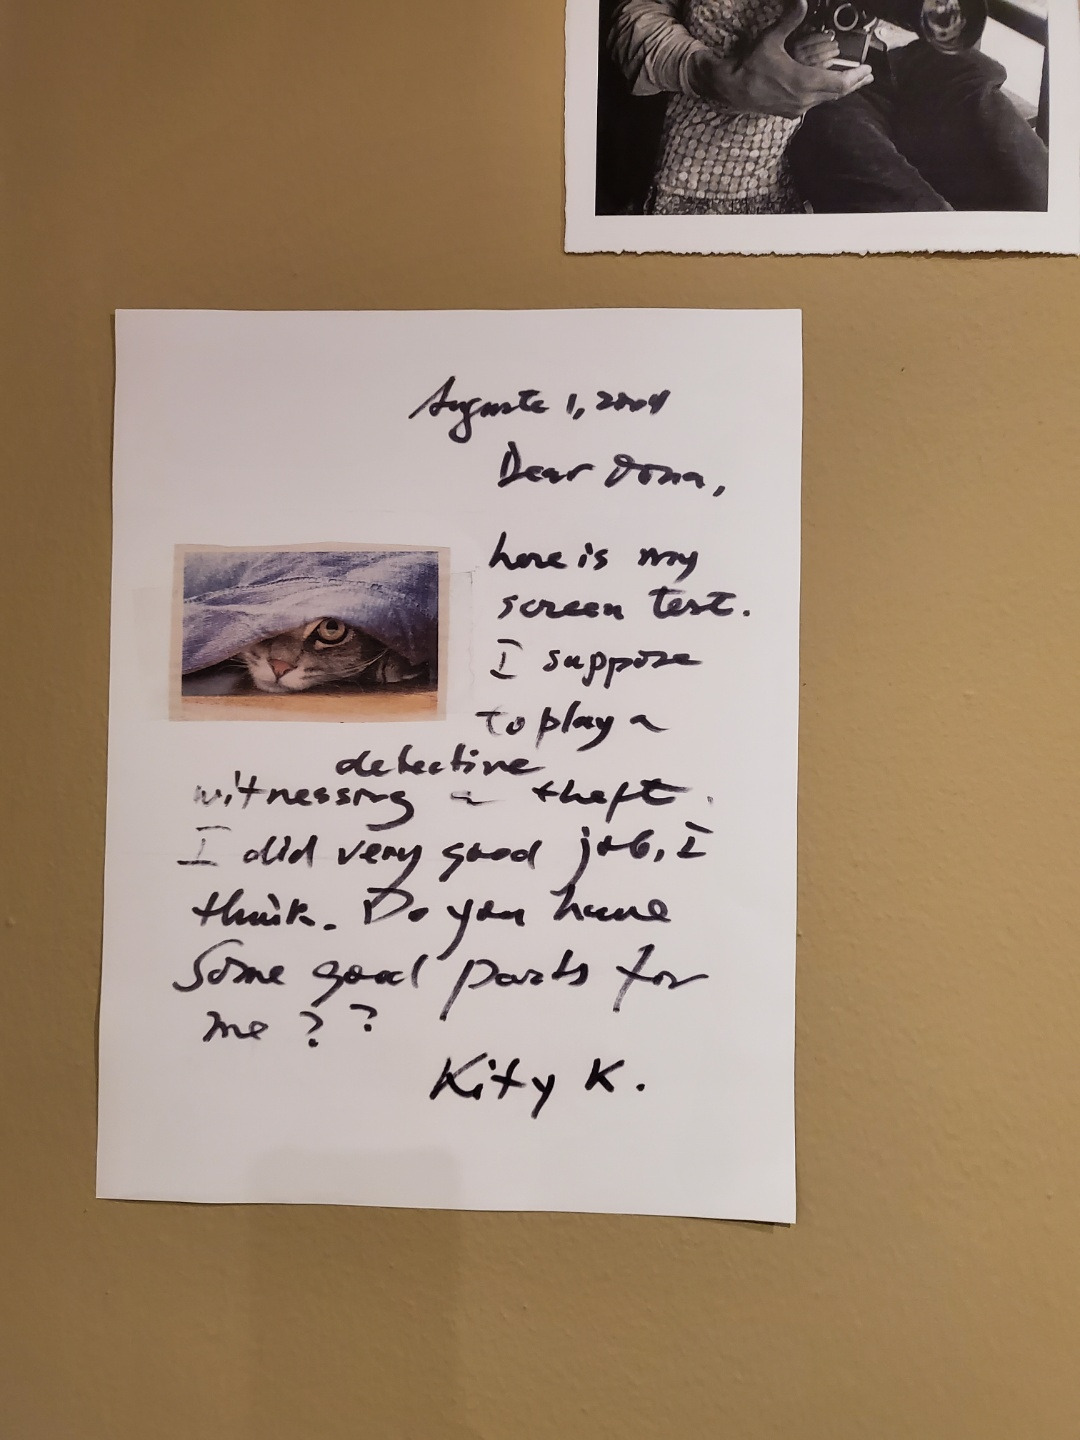 Auguste 1, 2004
Dear Dona,
here is my
screen test.
I suppose
to play a
detective
witnessing a theft.
I did very good job, I
think. Do you have
some good parts for
me ? ?
Kity K.